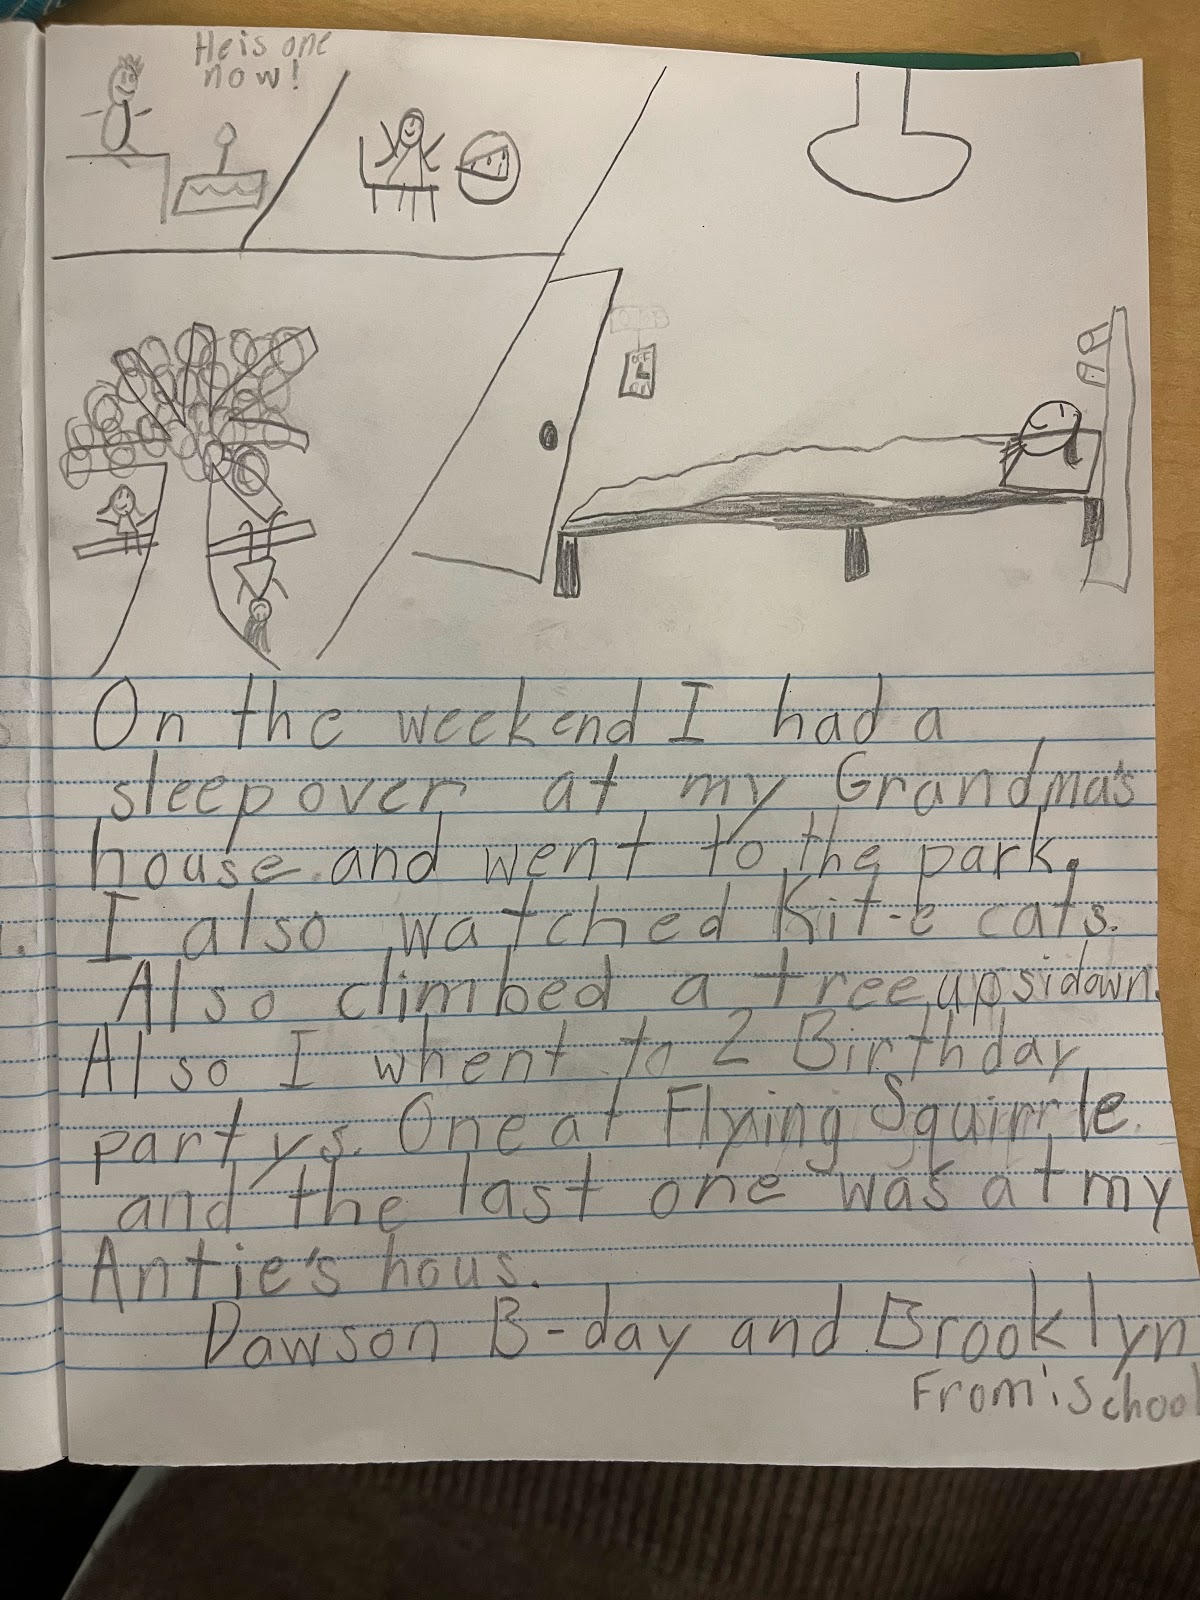 He is one
now!
OFF
ON
On the weekend I had a
sleepover at my Grandma's
house and went to the park.
I also watched Kit-e cats.
Also climbed a tree upsidawn.
Also I whent to 2 Birthday
partys. One at Flying Squirrle
and the last one was at my
Antie's hous.
Dawson B-day and Brooklyn
From school